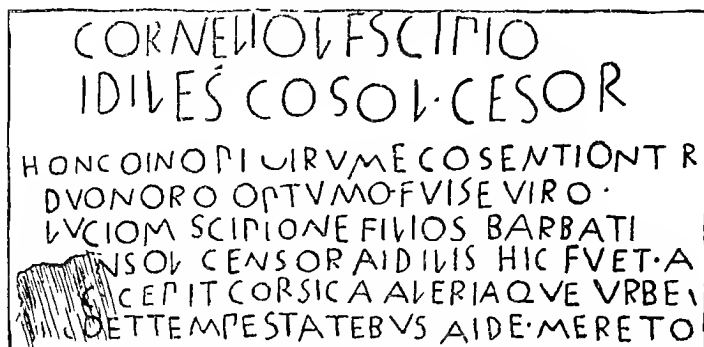 CORNELIO L F SCIPIO
IDILES COSOL·CESOR
HONC OINO PLOIRVME COSENTIONT R
DVONORO OPTVMO FVISE VIRO·
LVCIOM SCIPIONE FILIOS BARBATI
NSOL CENSOR AIDILIS HIC FVET·A
C CEPIT CORSICA ALERIAQVE VRBE
DET TEMPESTATEBVS AIDE·MERETO